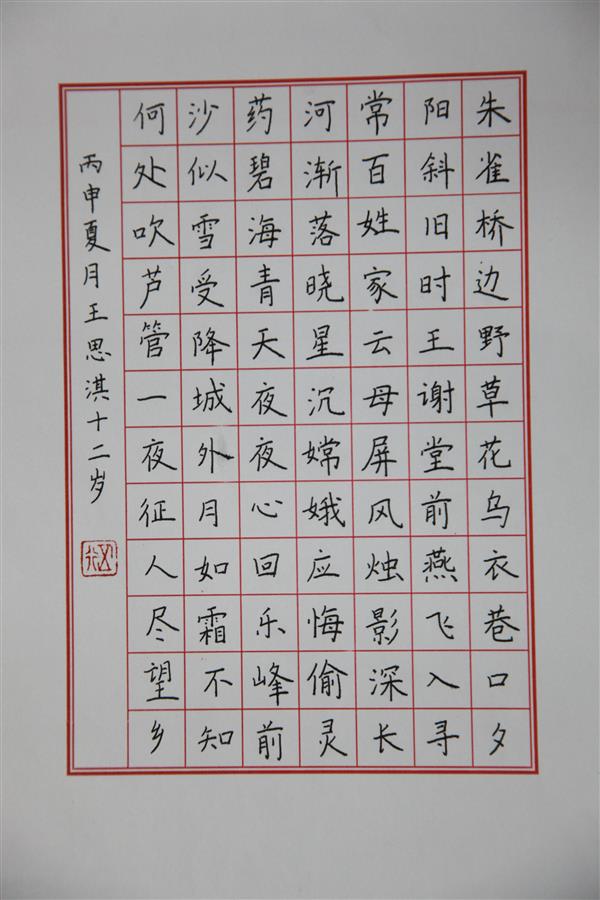 朱雀桥边野草花乌衣巷口夕
阳斜旧时王谢堂前燕飞入寻
常百姓家云母屏风烛影深长
河渐落晓星沉嫦娥应悔偷灵
药碧海青天夜夜心回乐峰前
沙似雪受降城外月如霜不知
何处吹芦管一夜征人尽望乡
丙申夏月王思淇十二岁